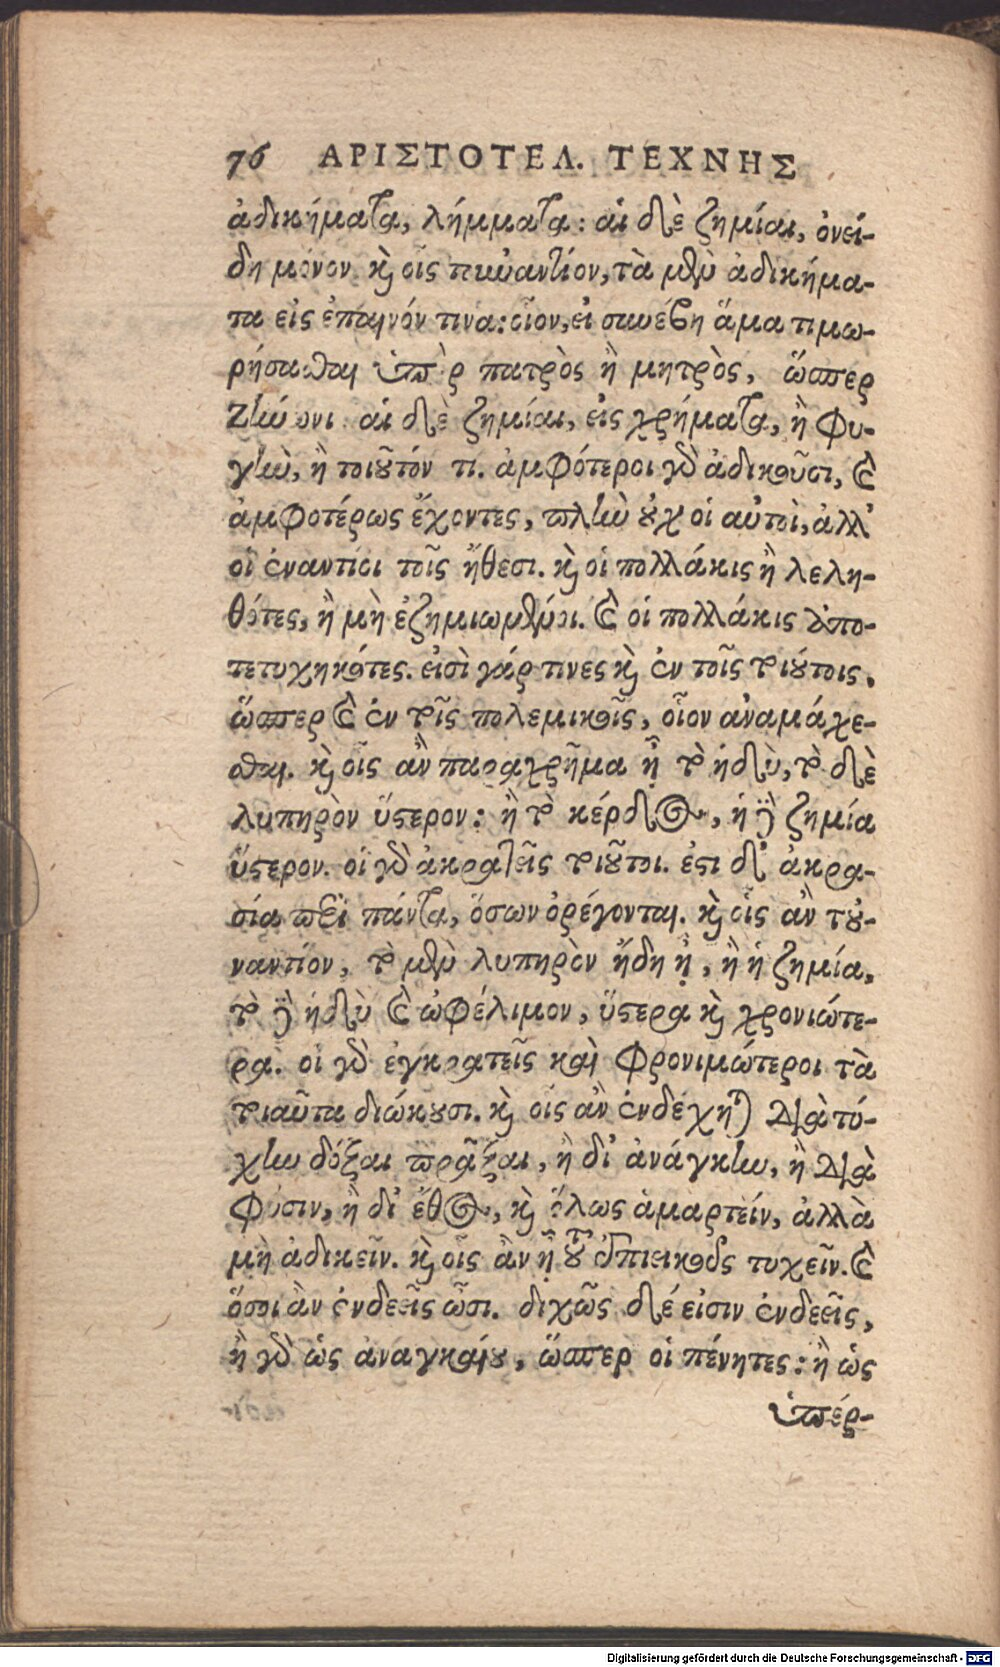 76 ΑΡΙΣΤΟΤΕΛ. ΤΕΧΝΗΣ
ἀδικήματα, λήμματα: αἱ δὲ ζημίαι, ὀνεί-
δη μόνον. καὶ οἷς τοὐναντίον, τὰ μὲν ἀδικήμα-
τα εἰς ἔπαινόν τινα: οἷον, εἰ συνέβη ἅμα τιμω-
ρήσασθαι ὑπὲρ πατρὸς ἢ μητρὸς, ὥσπερ
Ζήνωνι αἱ δὲ ζημίαι, εἰς χρήματα, ἢ φυ-
γὴν, ἢ τοιοῦτόν τι. ἀμφότεροι γὰρ ἀδικοῦσι, καὶ
ἀμφοτέρως ἔχοντες, πλὴν οὐχ οἱ αὐτοὶ, ἀλλ'
οἱ ἐναντίοι τοῖς ἤθεσι. καὶ οἱ πολλάκις ἢ λελη-
θότες, ἢ μὴ ἐζημιωμένοι. καὶ οἱ πολλάκις ἀπο-
τετυχηκότες. εἰσὶ γάρ τινες καὶ ἐν τοῖς τοιούτοις,
ὥσπερ καὶ ἐν τοῖς πολεμικοῖς, οἷον ἀναμάχε-
σθαι. καὶ οἷς ἂν παραχρῆμα ᾖ τὸ ἡδὺ, τὸ δὲ
λυπηρὸν ὕστερον: ἢ τὸ κέρδος, ἡ δὲ ζημία
ὕστερον. οἱ γὰρ ἀκρατεῖς τοιοῦτοι. ἔστι δ' ἀκρα-
σία περὶ πάντα, ὅσων ὀρέγονται. καὶ οἷς ἂν τοὐ-
ναντίον, τὸ μὲν λυπηρὸν ἤδη ᾖ, ἢ ἡ ζημία,
τὸ δὲ ἡδὺ καὶ ὠφέλιμον, ὕστερα καὶ χρονιώτε-
ρα. οἱ γὰρ ἐγκρατεῖς καὶ φρονιμώτεροι τὰ
τοιαῦτα διώκουσι. καὶ οἷς ἂν ἐνδέχηται διὰ τύ-
χην δόξαι πρᾶξαι, ἢ δι' ἀνάγκην, ἢ διὰ
φύσιν, ἢ δι' ἔθος, καὶ ὅλως ἁμαρτεῖν, ἀλλὰ
μὴ ἀδικεῖν. καὶ οἷς ἂν ᾖ τοῦ ἐπιεικοῦς τυχεῖν. καὶ
ὅσοι ἂν ἐνδεεῖς ὦσι. διχῶς δέ εἰσιν ἐνδεεῖς,
ἢ γὰρ ὡς ἀναγκαίου, ὥσπερ οἱ πένητες: ἢ ὡς
ὑπέρ-
Digitalisierung gefördert durch die Deutsche Forschungsgemeinschaft - DFG